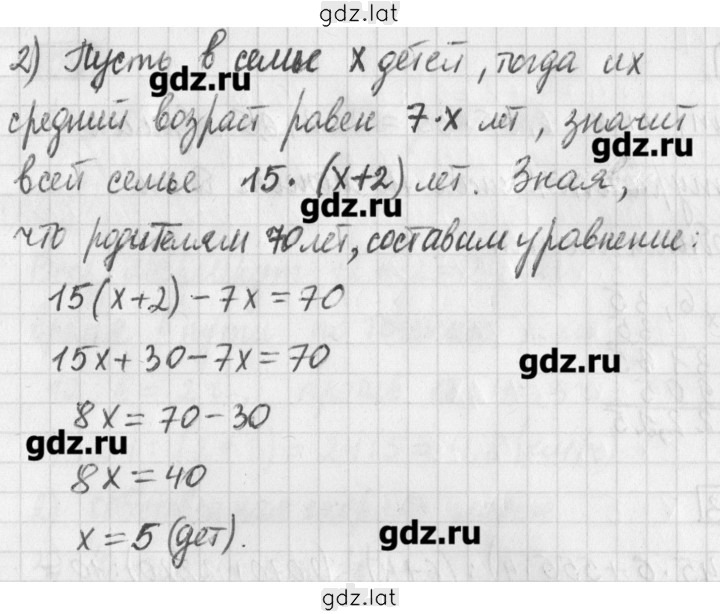 gdz.lat
2) Пусть в семье x детей, тогда их
gdz.ru
средний возраст равен 7·x лет, значит
gdz.ru
всей семье 15·(x+2) лет. Зная,
gdz.ru
что родителям 70 лет, составим уравнение:
15(x+2)-7x=70
15x+30-7x=70
gdz.ru
8x=70-30
gdz.ru
8x=40
x=5 (дет).
gdz.ru
gdz.lat